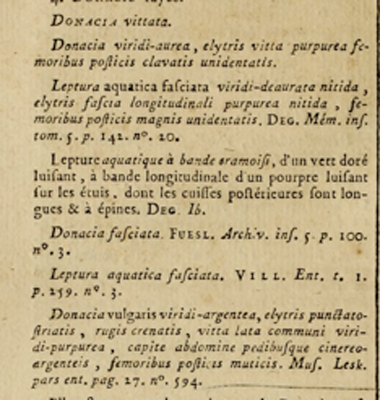 DONACIA vittata.
Donacia viridi-aurea, elytris vitta purpurea fe-
moribus posticis clavatis unidentatis.
Leptura aquatica fasciata viridi-deaurata nitida,
elytris fascia longitudinali purpurea nitida, fe-
moribus posticis magnis unidentatis. DEG. Mém. ins.
tom. 5. p. 142. nº. 20.
Lepture aquatique à bande cramoisi, d'un vert doré
luisant, à bande longitudinale d'un pourpre luisant
sur les étuis, dont les cuisses postérieures sont lon-
gues & à épines. DEG. Ib.
Donacia fasciata. FUESL. Archiv. ins. 5. p. 100.
nº. 3.
Leptura aquatica fasciata. VILL. Ent. t. 1.
p. 259. nº. 3.
Donacia vulgaris viridi-argentea, elytris punctato-
striatis, rugis crenatis, vitta lata communi viri-
di-purpurea, capite abdomine pedibusque cinereo-
argenteis, femoribus posticis muticis. Mus. Lesk.
pars ent. pag. 27. nº. 594.